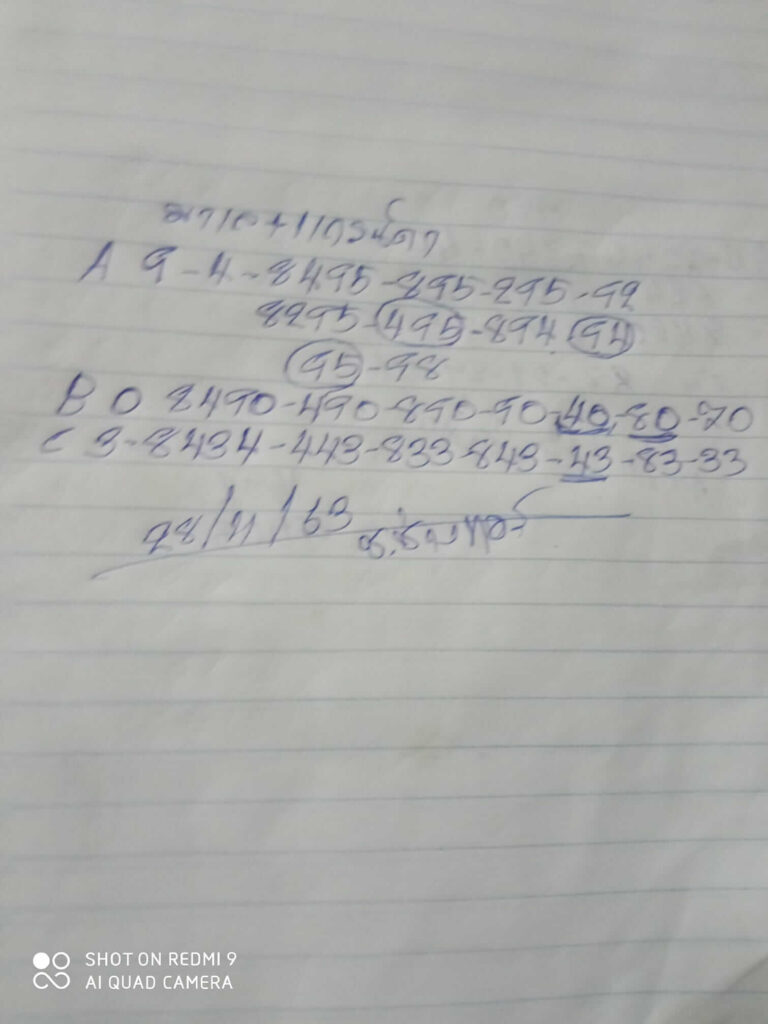 A 9-4-8495-895-295-92
8295-495-894 94
95-98
B 0 8490-490-890-90-40,80-70
C 3-8434-443-833-843-43-83-33
28/11/63
SHOT ON REDMI 9
AI QUAD CAMERA